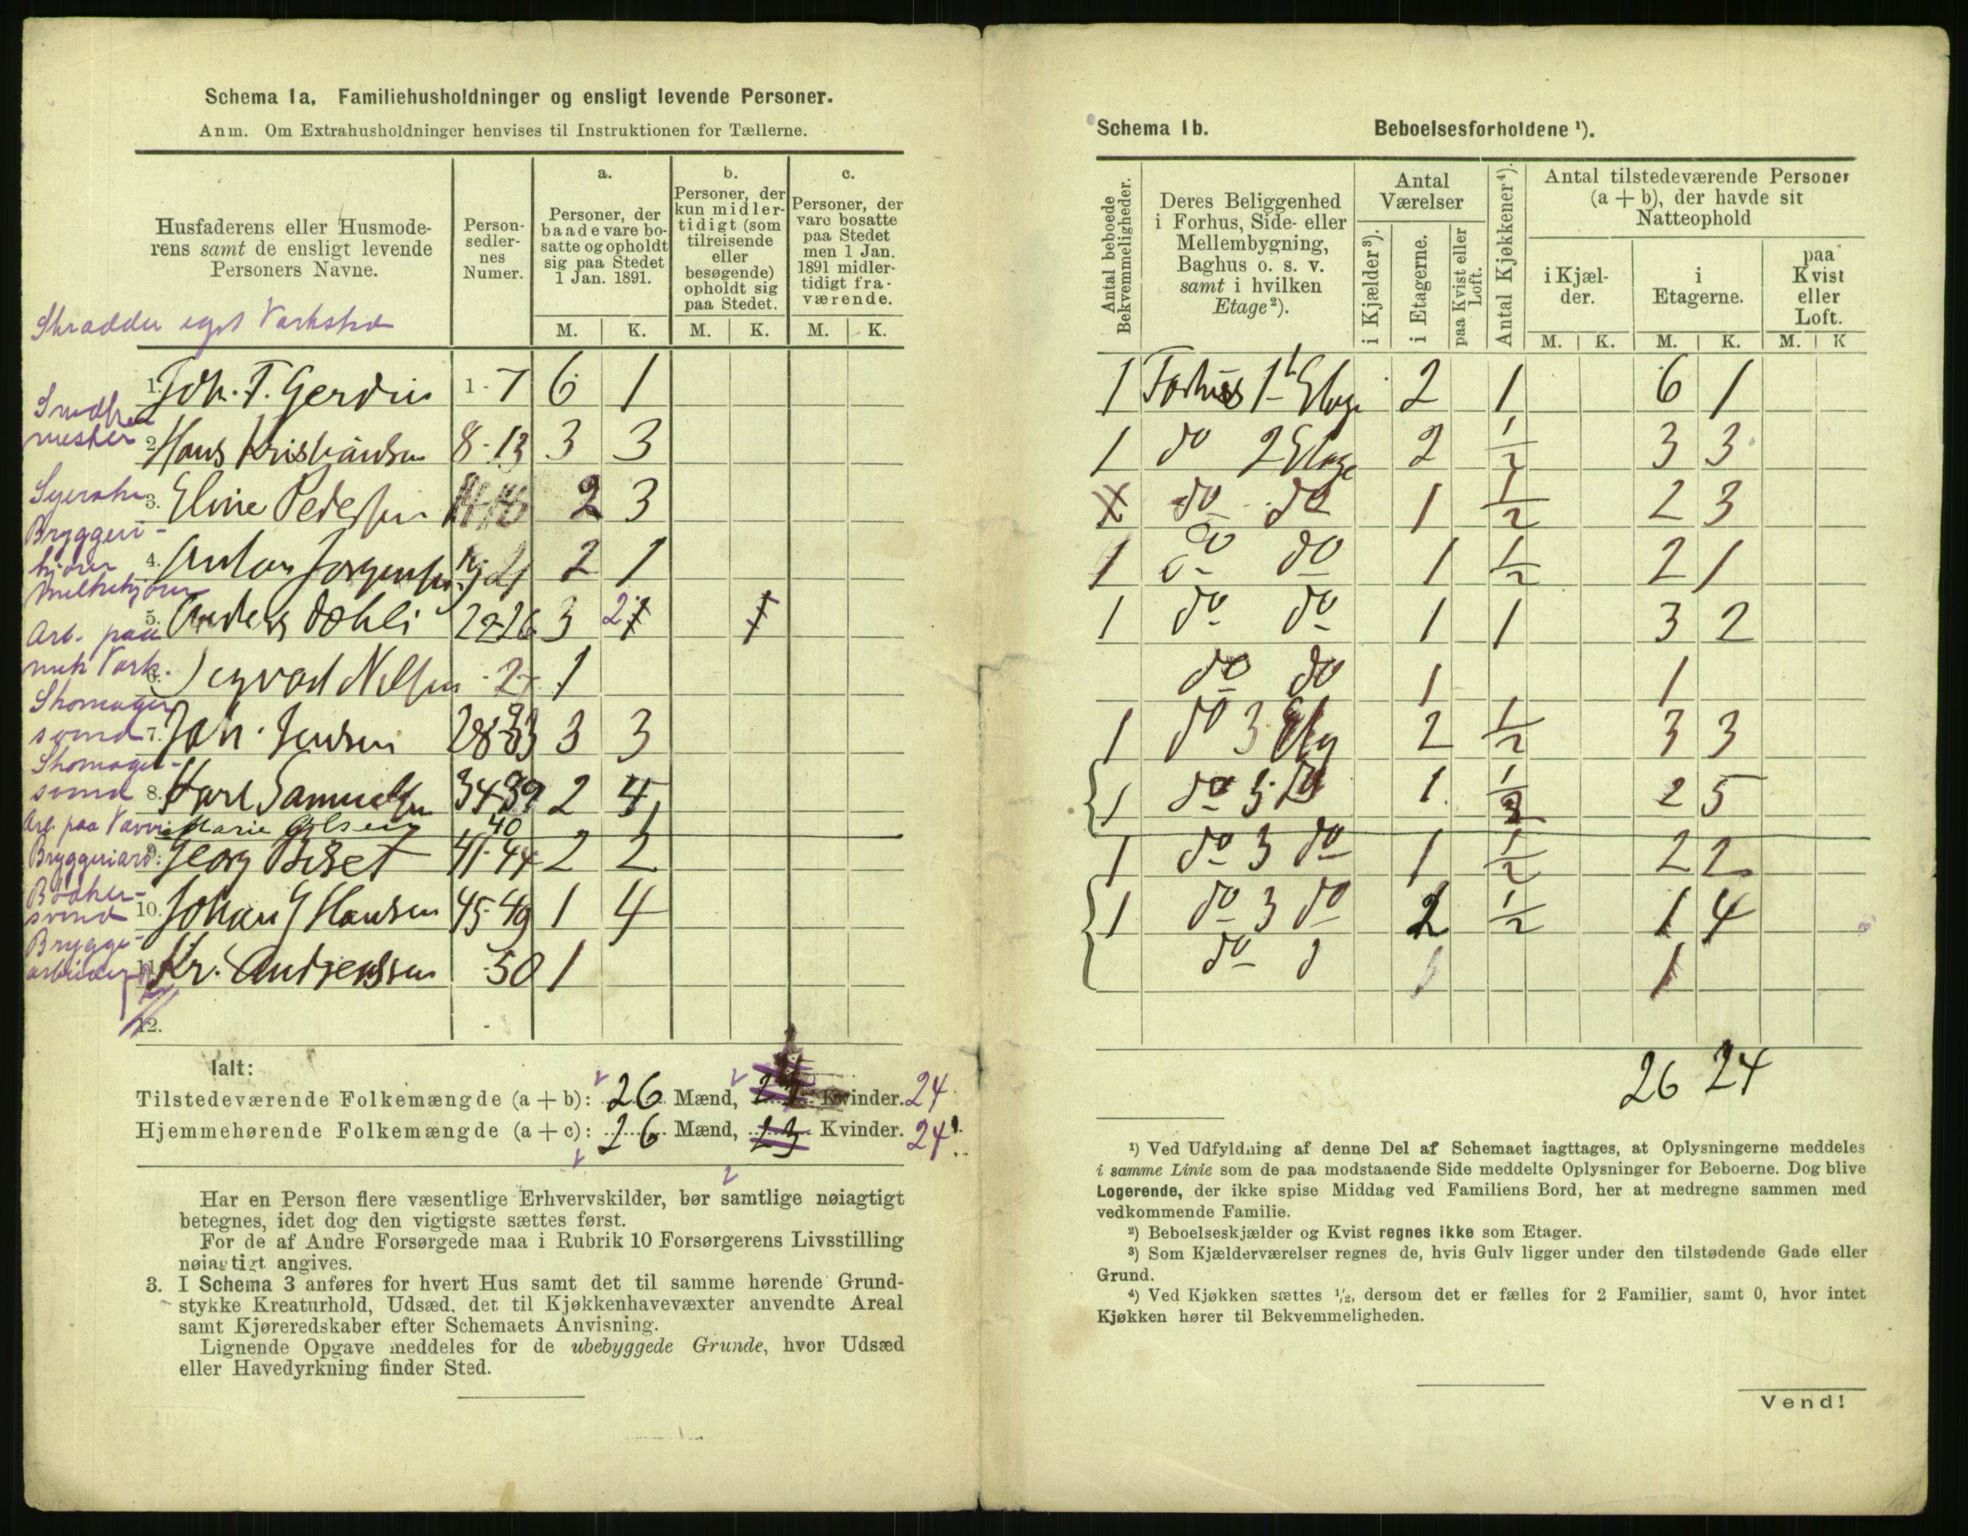 Schema 1a. Familiehusholdninger og ensligt levende Personer.
Anm. Om Extrahusholdninger henvises til Instruktionen for Tællerne.
Husfaderens eller Husmoderens samt de ensligt levende Personers Navne.
Personsedlernes Numer.
a.
Personer, der baade vare bosatte og opholdt sig paa Stedet 1 Jan. 1891.
b.
Personer, der kun midlertidigt (som tilreisende eller besøgende) opholdt sig paa Stedet.
c.
Personer, der vare bosatte paa Stedet men 1 Jan. 1891 midlertidigt fraværende.
M. K. M. K. M. K.
Skrædder eget Værksted
1. Joh. T. Gerdin 1-7 6 1
mester
2. Hans Kristiansen 8-13 3 3
Syerske
3. Eline Pedersen 2 3
Bryggeri-
kjører
4. Anton Jørgensen 19-21 2 1
Melkekjører
5. Anders Dæhli 22-26 3 2
Arb. paa
mek Værk.
6. Sigvart Nilsen 1
Skomager
svend
7. Joh. Jensen 28-33 3 3
Skomager-
svend
8. Karl Samuelsen 34-39 2 4
Arb. paa
Marie Olsen 40 1
Bryggeriarb:
9. Georg Biset 41-44 2 2
Bødker-
svend
10. Johan G Hansen 45-49 1 4
Brygge-
arbeider
11. Kr. Andreassen 50 1
12.
Ialt:
Tilstedeværende Folkemængde (a + b): 26 Mænd, Kvinder. 24
Hjemmehørende Folkemængde (a + c): 26 Mænd, 23 Kvinder. 24
Har en Person flere væsentlige Erhvervskilder, bør samtlige nøiagtigt
betegnes, idet dog den vigtigste sættes først.
For de af Andre Forsørgede maa i Rubrik 10 Forsørgerens Livsstilling
nøiagtigt angives.
3. I Schema 3 anføres for hvert Hus samt det til samme hørende Grund-
stykke Kreaturhold, Udsæd, det til Kjøkkenhavevæxter anvendte Areal
samt Kjøreredskaber efter Schemaets Anvisning.
Lignende Opgave meddeles for de ubebyggede Grunde, hvor Udsæd
eller Havedyrkning finder Sted.
Schema 1b. Beboelsesforholdene ¹).
Antal beboede Bekvemmeligheder.
Deres Beliggenhed i Forhus, Side- eller Mellembygning, Baghus o. s. v. samt i hvilken Etage²).
Antal Værelser
i Kjælder³).
i Etagerne.
paa Kvist eller Loft.
Antal Kjøkkener⁴).
Antal tilstedeværende Personer (a + b), der havde sit Natteophold
i Kjælder.
i Etagerne.
paa Kvist eller Loft.
M. K. M. K. M. K
1 Forhus 1 Etage 2 1 6 1
1 do 2 Etage 2 1/2 3 3
do do 1 1/2 2 3
1 do do 1 1/2 2 1
1 do do 1 1 3 2
do do 1 1
1 do 3 Etg 2 1/2 3 3
1 do 3 do 1 2 5
1 do 3 do 1 1/2 2 2
1 do 3 do 2 1/2 1 4
do 1
26 24
¹) Ved Udfyldning af denne Del af Schemaet iagttages, at Oplysningerne meddeles
i samme Linie som de paa modstaaende Side meddelte Oplysninger for Beboerne. Dog blive
Logerende, der ikke spise Middag ved Familiens Bord, her at medregne sammen med
vedkommende Familie.
²) Beboelseskjælder og Kvist regnes ikke som Etager.
³) Som Kjælderværelser regnes de, hvis Gulv ligger under den tilstødende Gade eller
Grund.
⁴) Ved Kjøkken sættes ½, dersom det er fælles for 2 Familier, samt 0, hvor intet
Kjøkken hører til Bekvemmeligheden.
Vend!